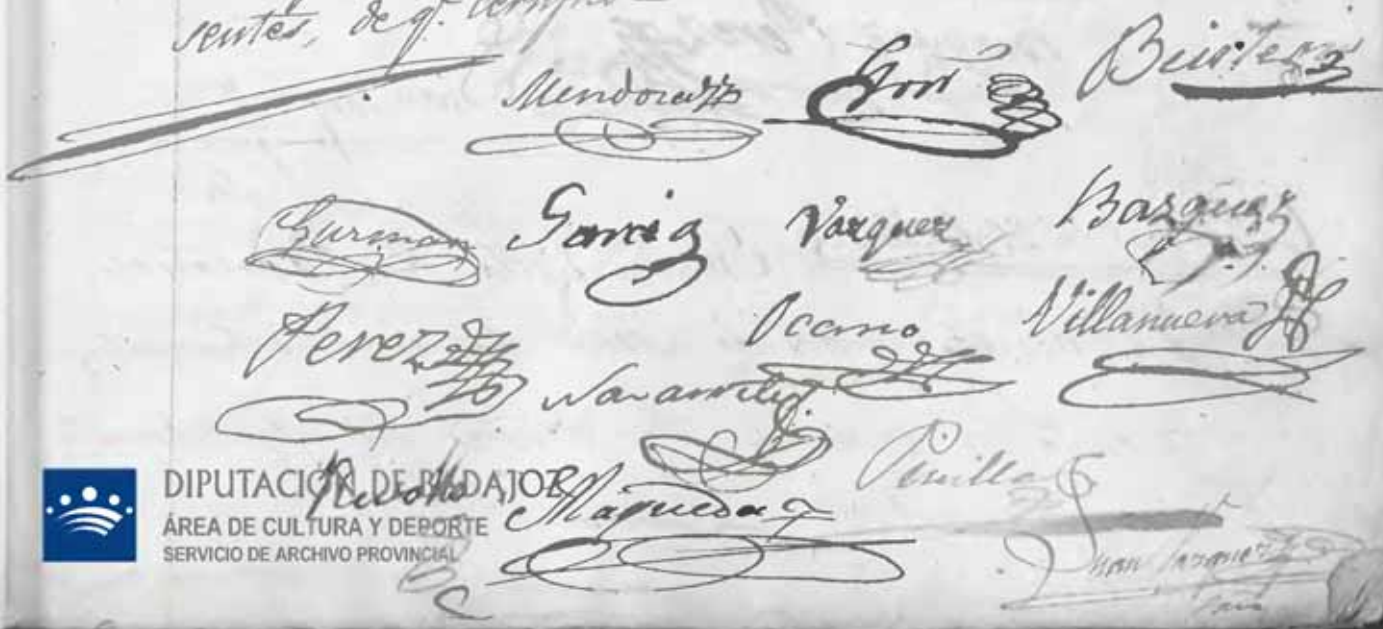 sentes, de q.e certifico
Mendoza Bustez
Guzman Garcia Vazquez Bazquez
Perez Ocano Villanueva
Navarrete
Pinilla
Rebollo Maqueda
Juan Vazquez
DIPUTACIÓN DE BADAJOZ
ÁREA DE CULTURA Y DEPORTE
SERVICIO DE ARCHIVO PROVINCIAL